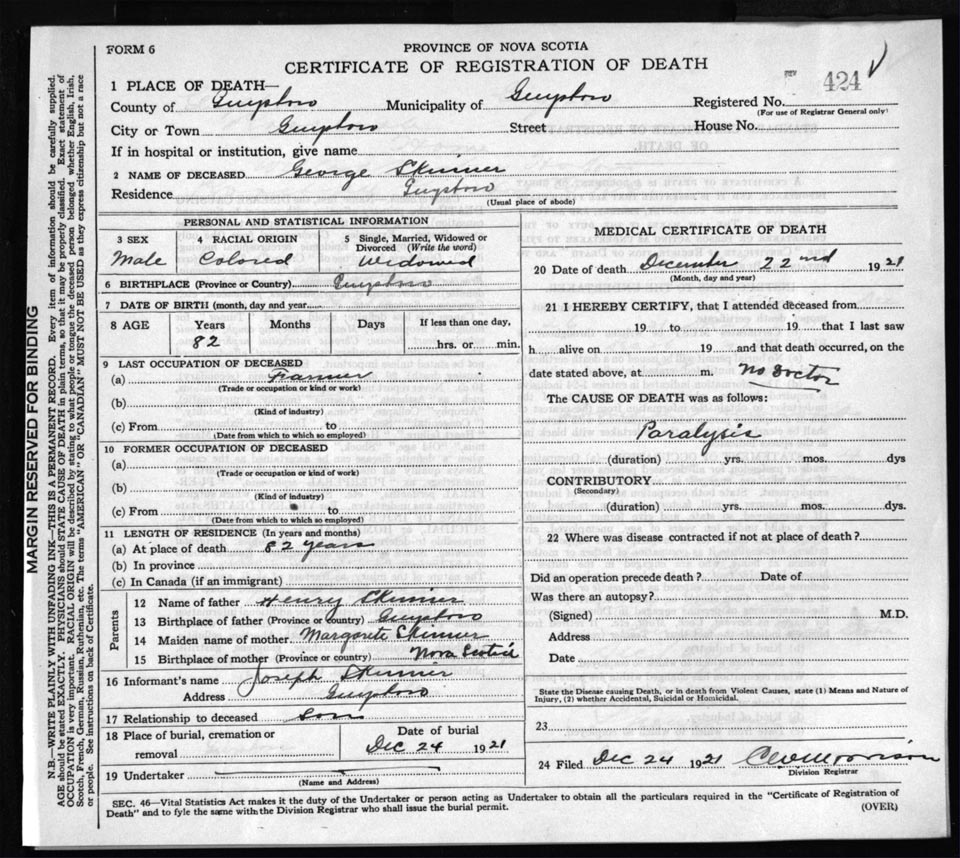 FORM 6
PROVINCE OF NOVA SCOTIA
CERTIFICATE OF REGISTRATION OF DEATH
424
1 PLACE OF DEATH—
County of Guysboro Municipality of Guysboro Registered No.
(For use of Registrar General only)
City or Town Guysboro Street House No.
If in hospital or institution, give name
2 NAME OF DECEASED George Skinner
Residence Guysboro
(Usual place of abode)
PERSONAL AND STATISTICAL INFORMATION
3 SEX 4 RACIAL ORIGIN 5 Single, Married, Widowed or Divorced (Write the word)
Male Colored Widowed
6 BIRTHPLACE (Province or Country) Guysboro
7 DATE OF BIRTH (month, day and year)
8 AGE Years Months Days If less than one day,
82 hrs. or min.
9 LAST OCCUPATION OF DECEASED
(a) Farmer
(Trade or occupation or kind or work)
(b)
(Kind of industry)
(c) From to
(Date from which to which so employed)
10 FORMER OCCUPATION OF DECEASED
(a)
(Trade or occupation or kind of work)
(b)
(Kind of industry)
(c) From to
(Date from which to which so employed)
11 LENGTH OF RESIDENCE (In years and months)
(a) At place of death 82 years
(b) In province
(c) In Canada (if an immigrant)
Parents
12 Name of father Henry Skinner
13 Birthplace of father (Province or country) Guysboro
14 Maiden name of mother Margarete Skinner
15 Birthplace of mother (Province or country) Nova Scotia
16 Informant's name Joseph Skinner
Address Guysboro
17 Relationship to deceased Son
18 Place of burial, cremation or removal Date of burial
Dec 24 1921
19 Undertaker
(Name and Address)
MEDICAL CERTIFICATE OF DEATH
20 Date of death December 22nd 1921
(Month, day and year)
21 I HEREBY CERTIFY, that I attended deceased from
19 to 19 that I last saw
h alive on 19 and that death occurred, on the
date stated above, at m. No Doctor
The CAUSE OF DEATH was as follows:
Paralysis
(duration) yrs. mos. dys
CONTRIBUTORY
(Secondary)
(duration) yrs. mos. dys.
22 Where was disease contracted if not at place of death?
Did an operation precede death? Date of
Was there an autopsy?
(Signed) M.D.
Address
Date
State the Disease causing Death, or in death from Violent Causes, state (1) Means and Nature of
Injury, (2) whether Accidental, Suicidal or Homicidal.
23
24 Filed Dec 24 1921
Division Registrar
SEC. 46—Vital Statistics Act makes it the duty of the Undertaker or person acting as Undertaker to obtain all the particulars required in the "Certificate of Registration of
Death" and to fyle the same with the Division Registrar who shall issue the burial permit. (OVER)
MARGIN RESERVED FOR BINDING
N.B.—WRITE PLAINLY WITH UNFADING INK—THIS IS A PERMANENT RECORD. Every item of information should be carefully supplied.
AGE should be stated EXACTLY. PHYSICIANS should STATE CAUSE OF DEATH in plain terms, so that it may be properly classified. Exact statement of
OCCUPATION is very important. RACIAL ORIGIN will be described by stating to what people or tongue the deceased person belonged whether English, Irish,
Scotch, French, German, Russian, Ruthenian, etc. The terms "AMERICAN" OR "CANADIAN" MUST NOT BE USED as they express citizenship but not a race
or people. See instructions on back of Certificate.